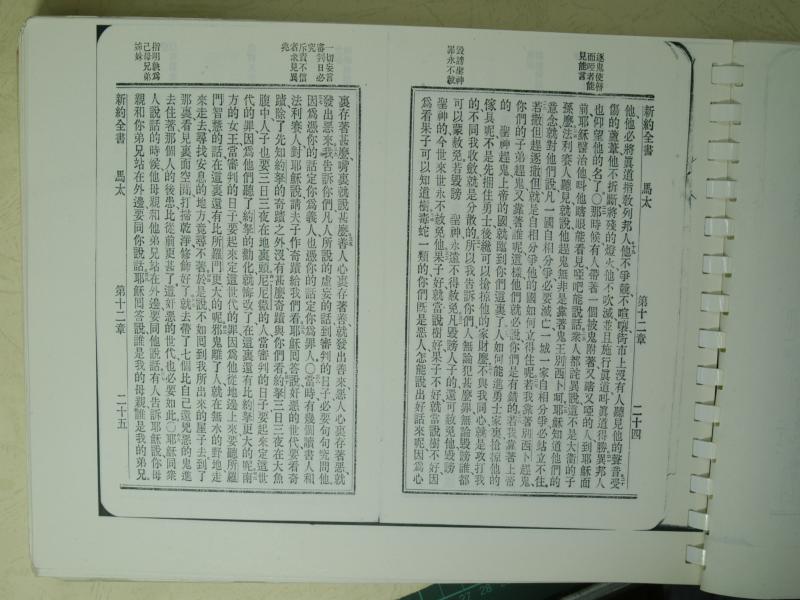 新約全書 馬太 第十二章 二十四
他、他必將眞道指敎列邦人、他不爭競、不喧嚷、街市上沒有人聽見他的聲音、受
傷的蘆葦他不折斷、將殘的燈火他不吹滅、並且施行眞道、叫眞道得勝、異邦人
也仰望他的名了○那時候有人帶著一個被鬼附著、又瞎又啞的人、到耶穌面
前、耶穌醫治他、叫他瞎眼能看見、啞吧能說話、衆人都詫異說、這不是大衞的子
孫麽、法利賽人聽見就說、他趕鬼無非是靠著鬼王別西卜呵、耶穌知道他們的
意念、就對他們說、凡一國自相分爭、必要滅亡、一城一家自相分爭、必站立不住、
若撒但趕逐撒但、就是自相分爭、他的國如何立得住呢、若我靠著別西卜趕鬼、
你們的子弟趕鬼、又靠著誰呢、這樣他們就必說你們是有錯的、若我靠著上帝
的 聖神趕鬼、上帝的國就臨到你們這裏了、人如何能進勇士家裏、搶掠他的
傢具呢、不是先捆住勇士、後纔可以搶掠他的家財麽、不與我同心、就是攻打我
的、不同我收斂、就是分散的、所以我告訴你們、人無論犯甚麽罪、無論毀謗誰、都
可以蒙赦免、若毀謗 聖神、永遠不得赦免、凡毀謗人子的、還可赦免、他毀謗
聖神的、今世來世、永不赦免、他果子好、就當說樹好、果子不好、就當說樹不好、因
爲看果子可以知道樹、毒蛇一類的、你們既是惡人、怎能說出好話來呢、因爲心
逐鬼使瞽
而啞者能
見能言
毀謗聖神
罪永不赦
裏存著甚麽、嘴裏就說甚麽、善人心裏存著善、就發出善來、惡人心裏存著惡、就
發出惡來、我告訴你們、凡人所說的虛妄的話、到審判的日子、必要句句究問他、
因爲憑你的話定你爲義人、也憑你的話定你爲罪人、○當時有幾個讀書人和
法利賽人對耶穌說、請夫子作奇蹟給我們看、耶穌回答說、奸惡的世代、要看奇
蹟、除了先知約拏的奇蹟之外、沒有甚麽奇蹟與你們看、約拏三日三夜在大魚
腹中、人子也要三日三夜在地裏頭、尼尼微的人、當審判的日子、要起來定這世
代的罪、因爲他們聽了約拏的勸化、就悔改了、在這裏還有比約拏更大的呢、南
方的女王、當審判的日子、要起來定這世代的罪、因爲他從地邊上來、要聽所羅
門智慧的話、在這裏還有比所羅門更大的呢、邪鬼離了人、就在無水的野地走
來走去、尋找安息的地方、竟尋不著、於是說、不如回到我所出來的屋子去、到了
那裏、看見裏面空閒、打掃乾淨、修飾好了、就去帶了七個比自己還兇惡的鬼、進
去住著、那個人的後患比從前更甚了、這奸惡的世代、也必要如此、○耶穌同衆
人說話的時候、他母親和他弟兄站在外邊、要同他說話、有人告訴耶穌說、你母
親和你弟兄站在外邊、要同你說話、耶穌回答說、誰是我的母親、誰是我的弟兄、
新約全書 馬太 第十二章 二十五
一切妄言
審判日必
究
斥責不信
者求見異
兆
指明孰爲
己母兄弟
姊妹